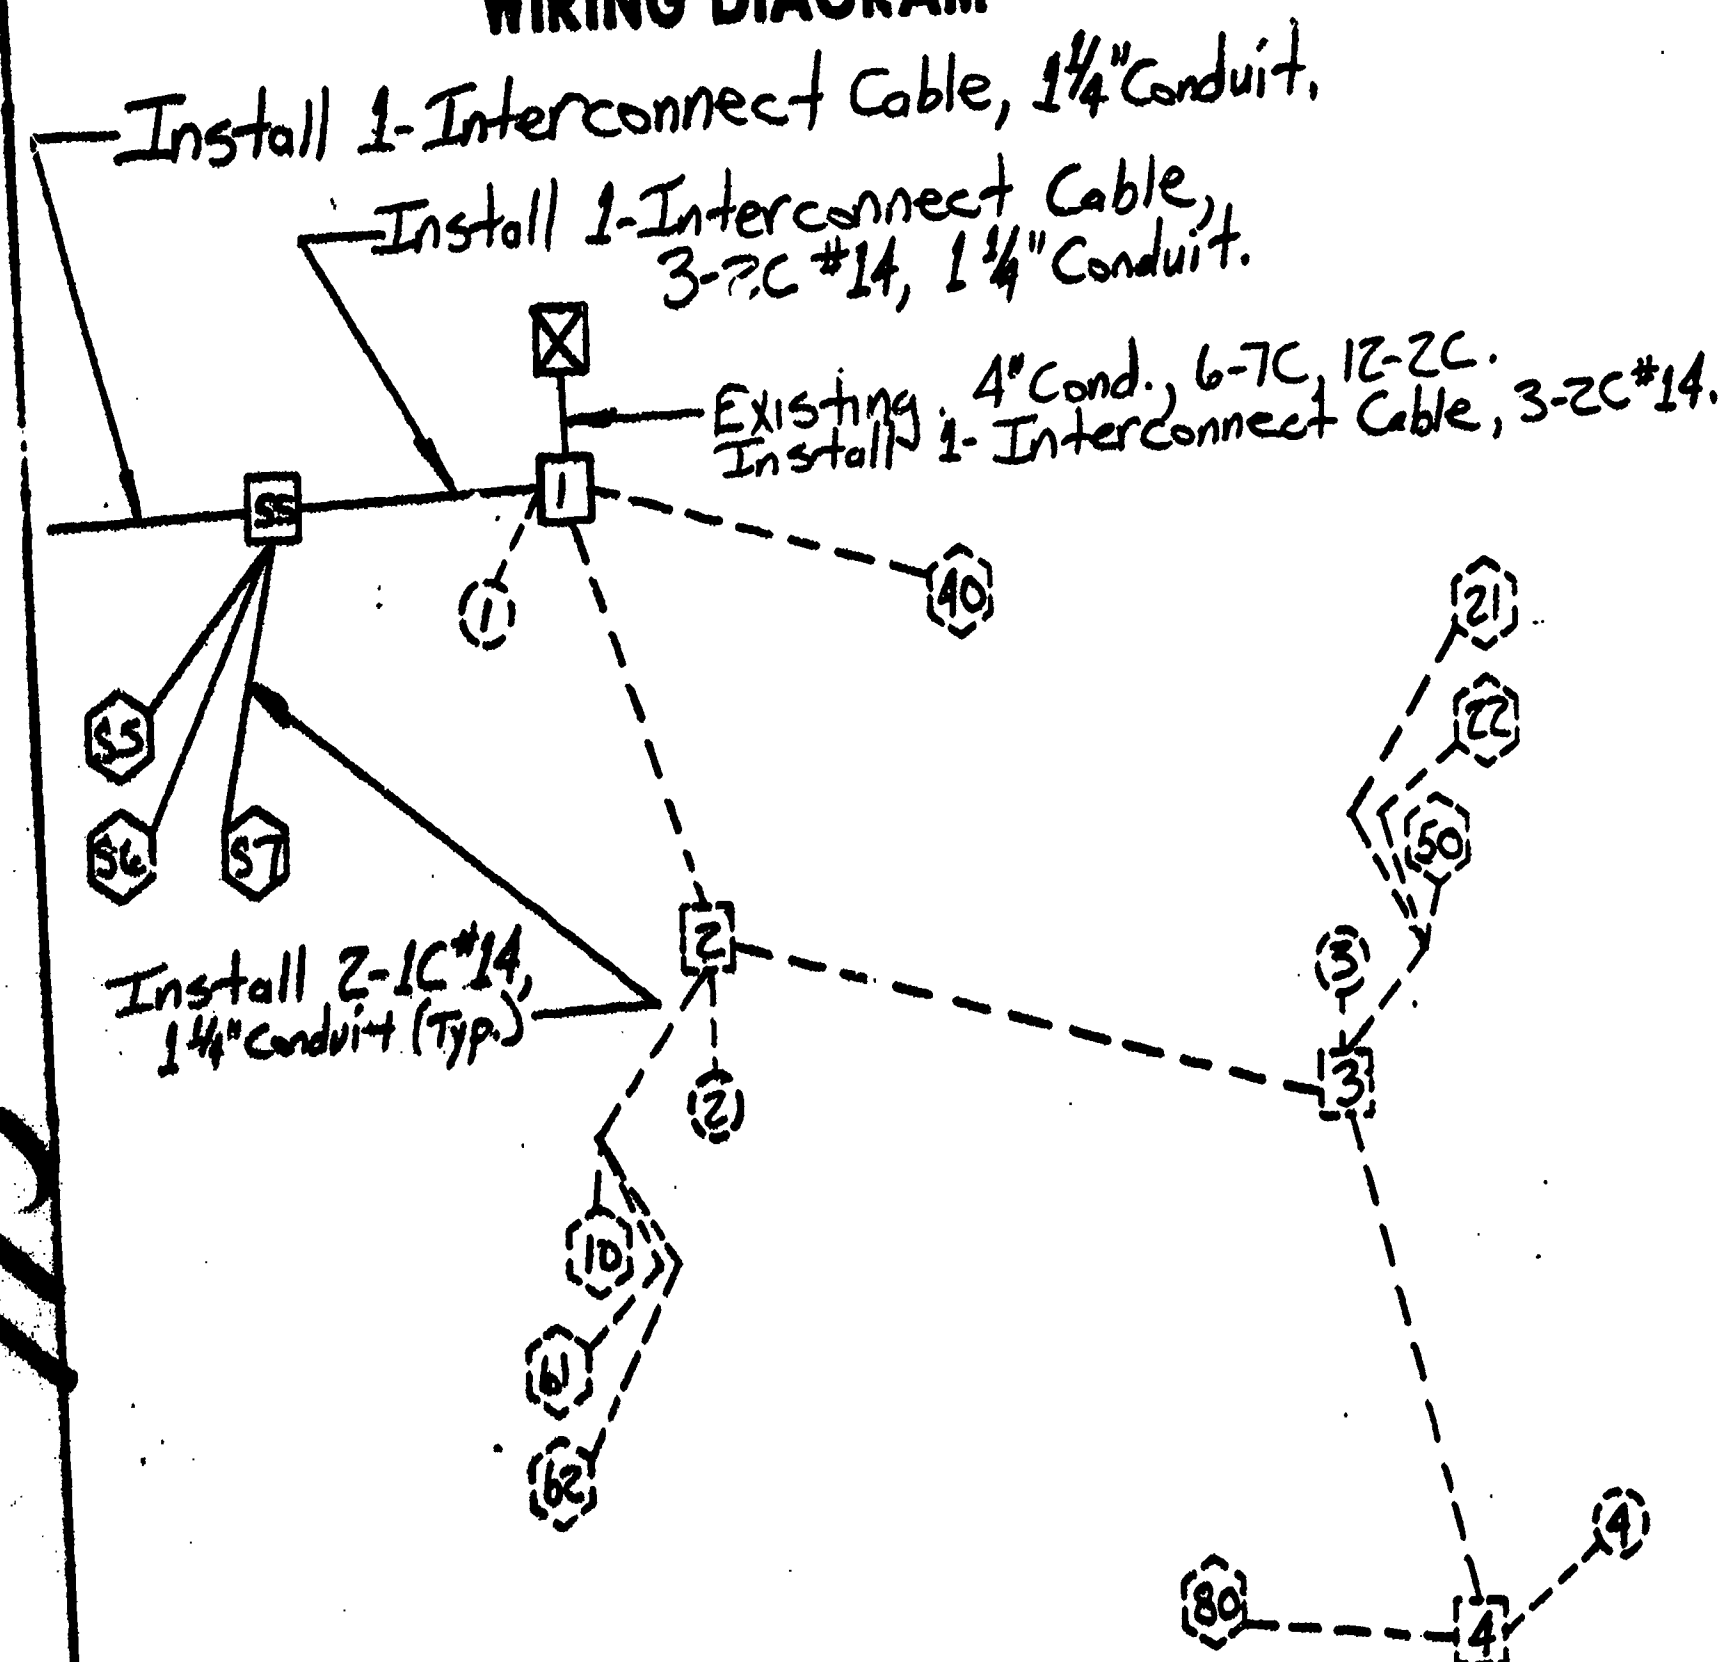 WIRING DIAGRAM
Install 1-Interconnect Cable, 1¼" Conduit.
Install 1-Interconnect Cable,
3-2C #14, 1¼" Conduit.
Existing 4" Cond., 6-7C, 12-2C.
Install 1-Interconnect Cable, 3-2C #14.
SS
1
1
40
21
22
50
S5
S6
S7
2
3
3
Install 2-1C #14,
1¼" Conduit (Typ.)
2
10
61
62
4
80
4